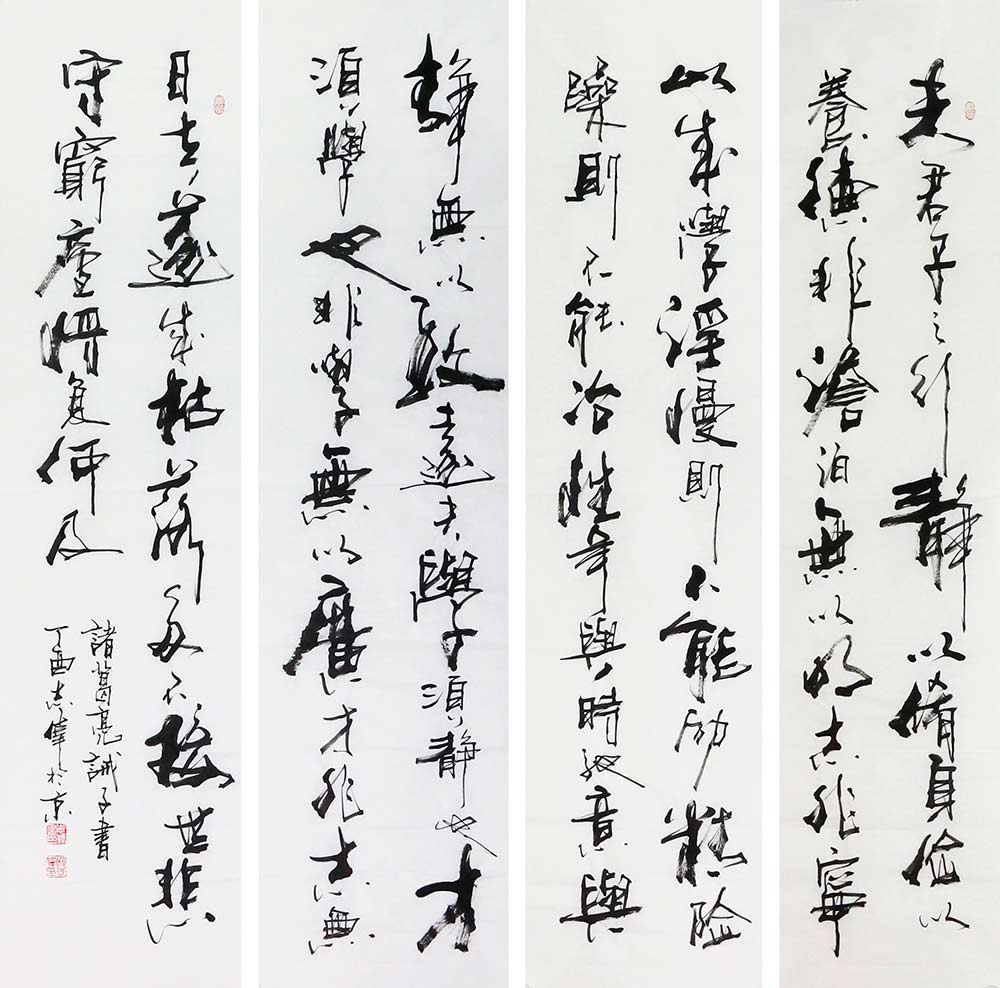 夫君子之行靜以脩身儉以
養德非澹泊無以明志非寧
靜無以致遠夫學須靜也才
須學也非學無以廣才非志無
以成學淫慢則不能励精险
躁則不能治性年與時馳意與
日去遂成枯落多不接世悲
守窮廬將復何及
諸葛亮誡子書
丁酉志偉於京